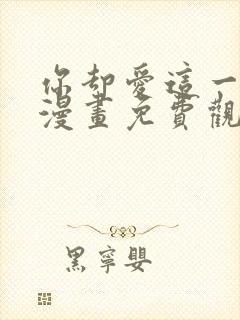 你却愛這一
漫畫免費觀
黑寧嬰